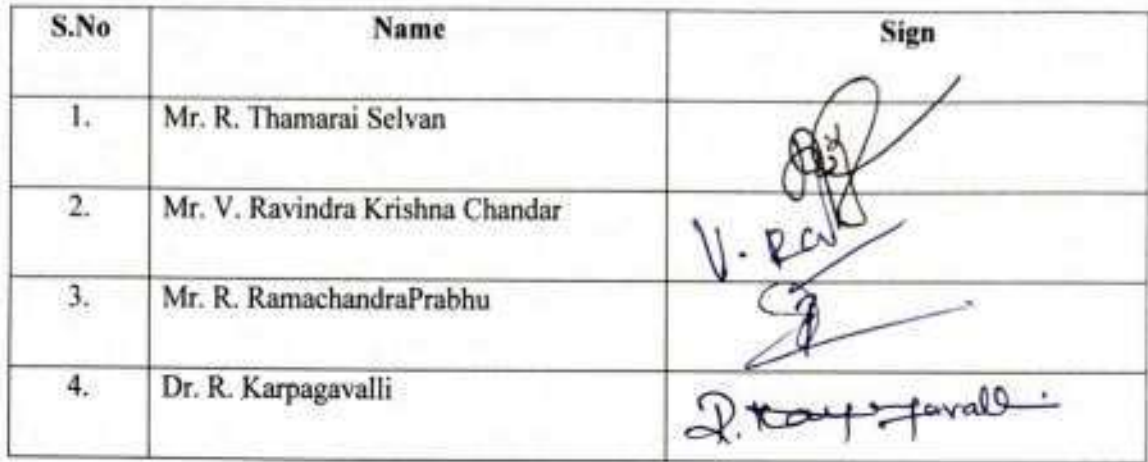 S.No Name Sign
1. Mr. R. Thamarai Selvan
2. Mr. V. Ravindra Krishna Chandar V.
3. Mr. R. RamachandraPrabhu
4. Dr. R. Karpagavalli R.